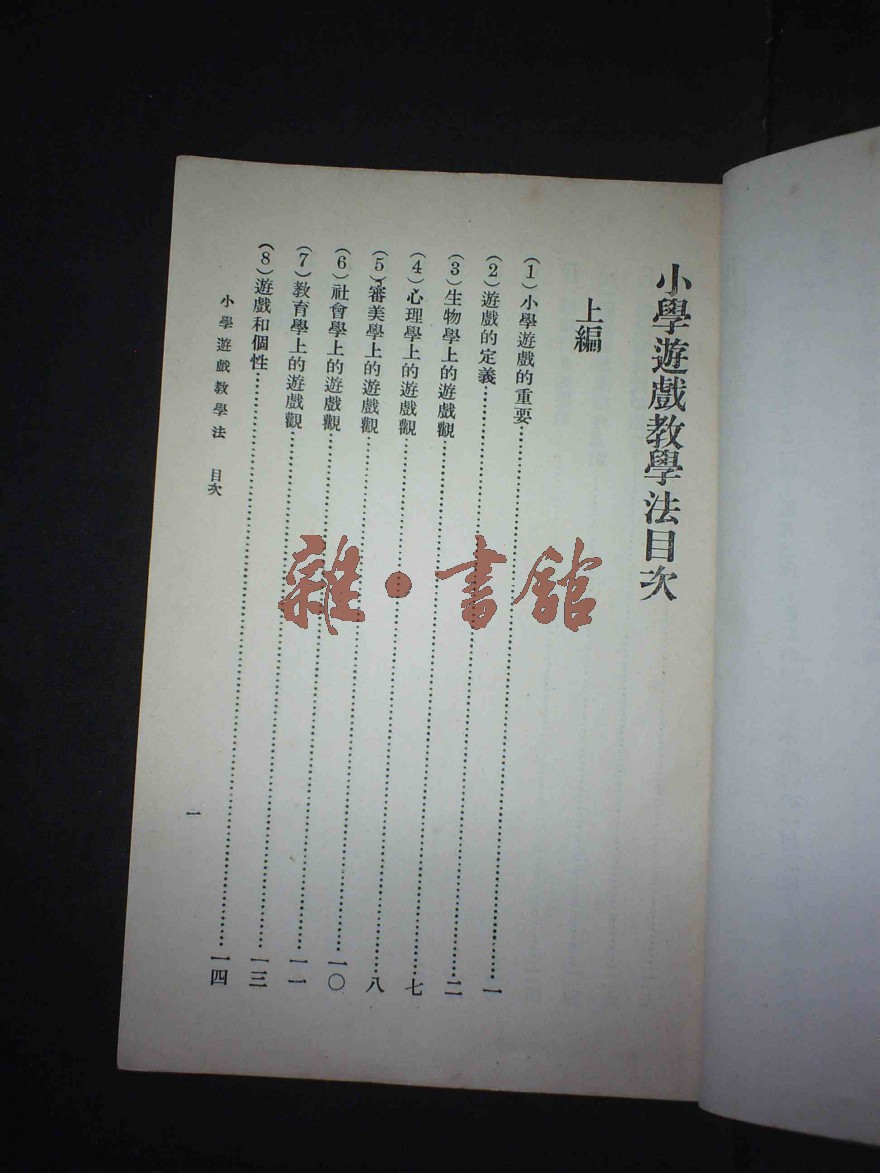 小學遊戲教學法目次
上編
(1)小學遊戲的重要……一
(2)遊戲的定義……二
(3)生物學上的遊戲觀……七
(4)心理學上的遊戲觀……八
(5)審美學上的遊戲觀……一〇
(6)社會學上的遊戲觀……一一
(7)教育學上的遊戲觀……一三
(8)遊戲和個性……一四
小學遊戲教學法 目次
一
雜·書館